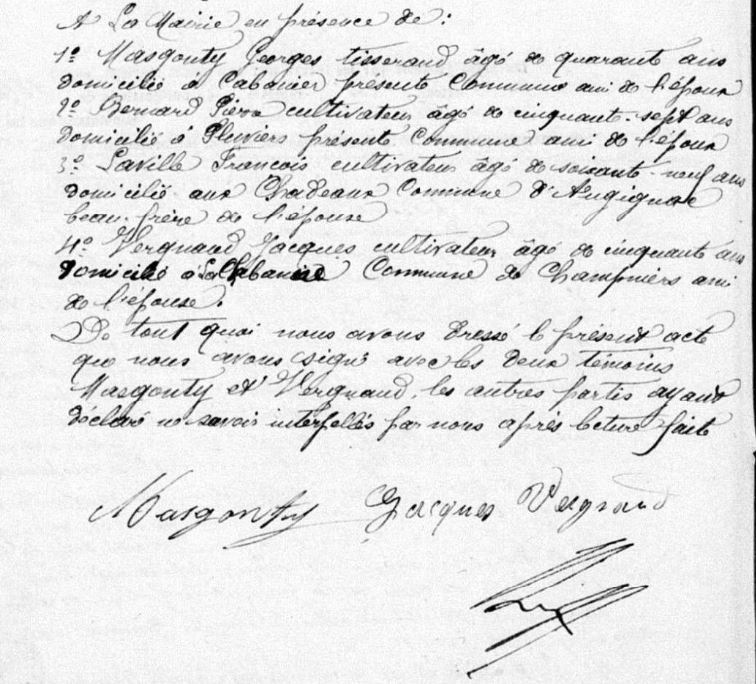 A La Mairie en présence de :
1º Masgonty Georges tisserand âgé de quarante ans
domicilié à Cabanier présente Commune ami de l'époux
2º Bernard Pierre cultivateur âgé de cinquante-sept ans
domicilié à Pluviers présente Commune ami de l'époux
3º Laville François cultivateur âgé de soixante-neuf ans
domicilié aux Chadeaux Commune d'Augignac
beau-frère de l'épouse
4º Vergnaud Jacques cultivateur âgé de cinquante ans
domicilié à Commune de Champniers ami
de l'épouse.
De tout quoi nous avons dressé le présent acte
que nous avons signé avec les deux témoins
Masgonty et Vergnaud, les autres partis ayant
déclaré ne savoir interpellés par nous après lecture faite
Masgonty Jacques Vergnaud